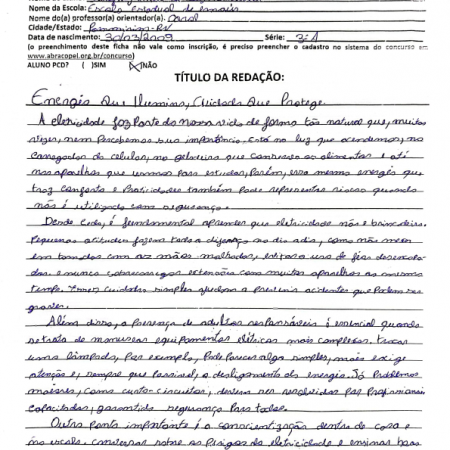 Nome da Escola: Escola Estadual
Nome do(a) professor(a) orientador(a).
Cidade/Estado: Parnamirim-RN
Data de nascimento: 30/03/2009 Série: 3ªA
(o preenchimento deste ficha não vale como inscrição, é preciso preencher o cadastro no sistema do concurso em
www.abracopel.org.br/concurso)
ALUNO PCD? ( )SIM (X)NÃO
TÍTULO DA REDAÇÃO:
Energia Que Ilumina, Cuidado Que Protege
A eletricidade faz parte da nossa vida de forma tão natural que, muitas
vezes, nem percebemos sua importância. Está na luz que acendemos, no
carregador do celular, na geladeira que conserva os alimentos e até
nos aparelhos que usamos para estudar, porém, essa mesma energia que
traz conforto e praticidade também pode representar riscos quando
não é utilizada com segurança.
Desde cedo, é fundamental aprender que eletricidade não é brincadeira.
Pequenas atitudes fazem toda a diferença no dia a dia, como não mexer
em tomadas com as mãos molhadas, evitar o uso de fios desencapa-
dos e nunca sobrecarregar extensões com muitos aparelhos ao mesmo
tempo. Esses cuidados simples ajudam a prevenir acidentes que podem ser
graves.
Além disso, a presença de adultos responsáveis é essencial quando
se trata de manusear equipamentos elétricos mais complexos. Trocar
uma lâmpada, por exemplo, pode parecer algo simples, mais exige
atenção e, sempre que possível, o desligamento da energia. Já problemas
maiores, como curto-circuitos, devem ser resolvidos por profissionais
capacitados, garantindo segurança para todos.
Outro ponto importante é a conscientização dentro de casa e
na escola. Conversar sobre os perigos da eletricidade e ensinar boas